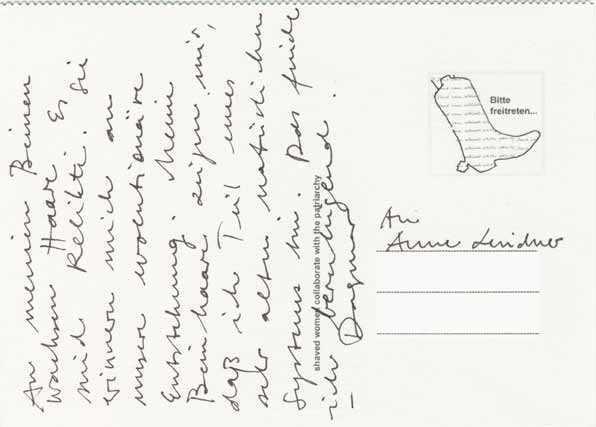 An meinen Beinen
wachsen Haare. Es sie
sind Relikte. Sie
erinnern mich an
unsere evolutionäre
Entstehung. Meine
Beinhaare zeigen mir,
daß ich Teil eines
sehr alten natürlichen
Systems bin. Das finde
ich beruhigend.
– Dagmar
shaved women collaborate with the patriarchy
Bitte
freitreten...
An
Anne Lindner